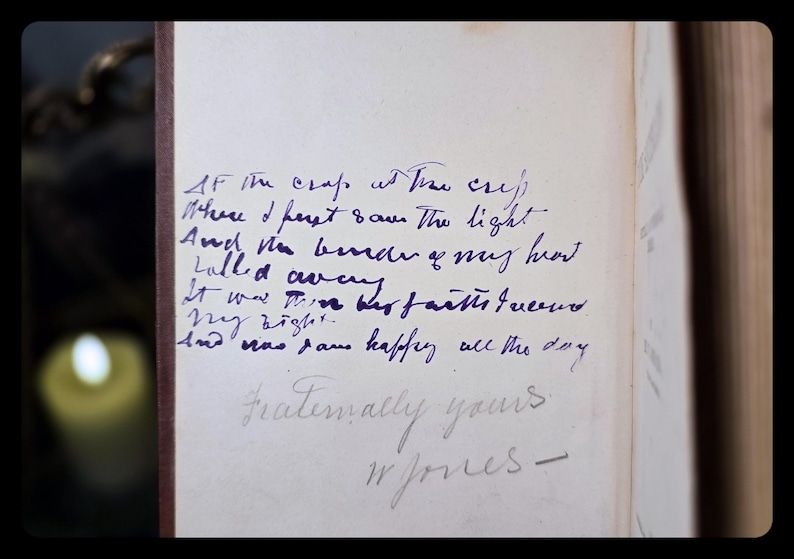 At the cross at the cross
Where I first saw the light
And the burden of my heart
rolled away
It was there by faith I received
My sight
And now I am happy all the day
Fraternally yours
W Jones